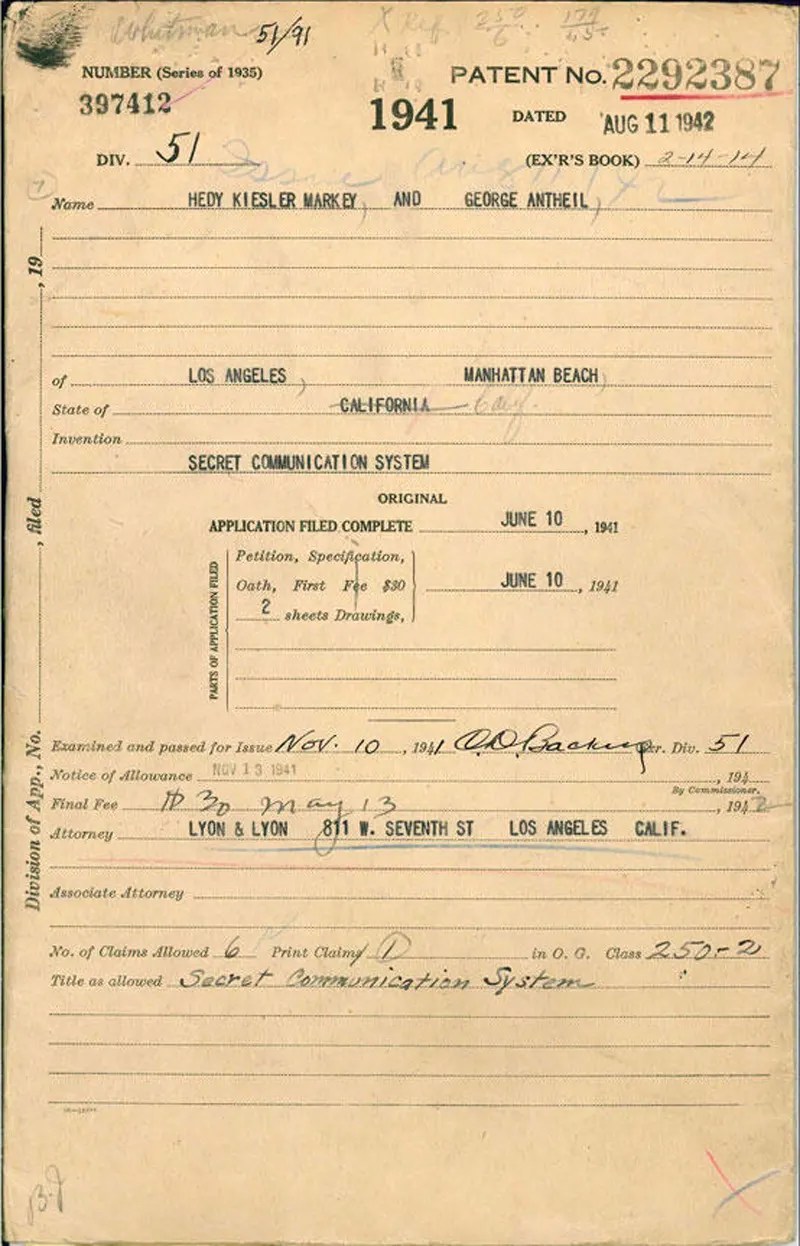 Whitman 51/91 X Ref. 250/6 179/1.5
NUMBER (Series of 1935)
397412
1941
PATENT No. 2292387
DATED AUG 11 1942
DIV. 51
(EX'R'S BOOK) 2-14-14
Name HEDY KIESLER MARKEY, AND GEORGE ANTHEIL,
of LOS ANGELES, MANHATTAN BEACH,
State of CALIFORNIA
Invention
SECRET COMMUNICATION SYSTEM
ORIGINAL
APPLICATION FILED COMPLETE JUNE 10, 1941
PARTS OF APPLICATION FILED
Petition, Specification,
Oath, First Fee $30 JUNE 10, 1941
2 sheets Drawings,
Division of App., No. , filed , 19
Examined and passed for Issue Nov. 10, 1941 Ex'r. Div. 51
Notice of Allowance NOV 13 1941 , 194
By Commissioner.
Final Fee $30 May 13 , 1942
Attorney LYON & LYON 811 W. SEVENTH ST LOS ANGELES CALIF.
Associate Attorney
No. of Claims Allowed 6 Print Claim 1 in O. G. Class 250-2
Title as allowed Secret Communication System